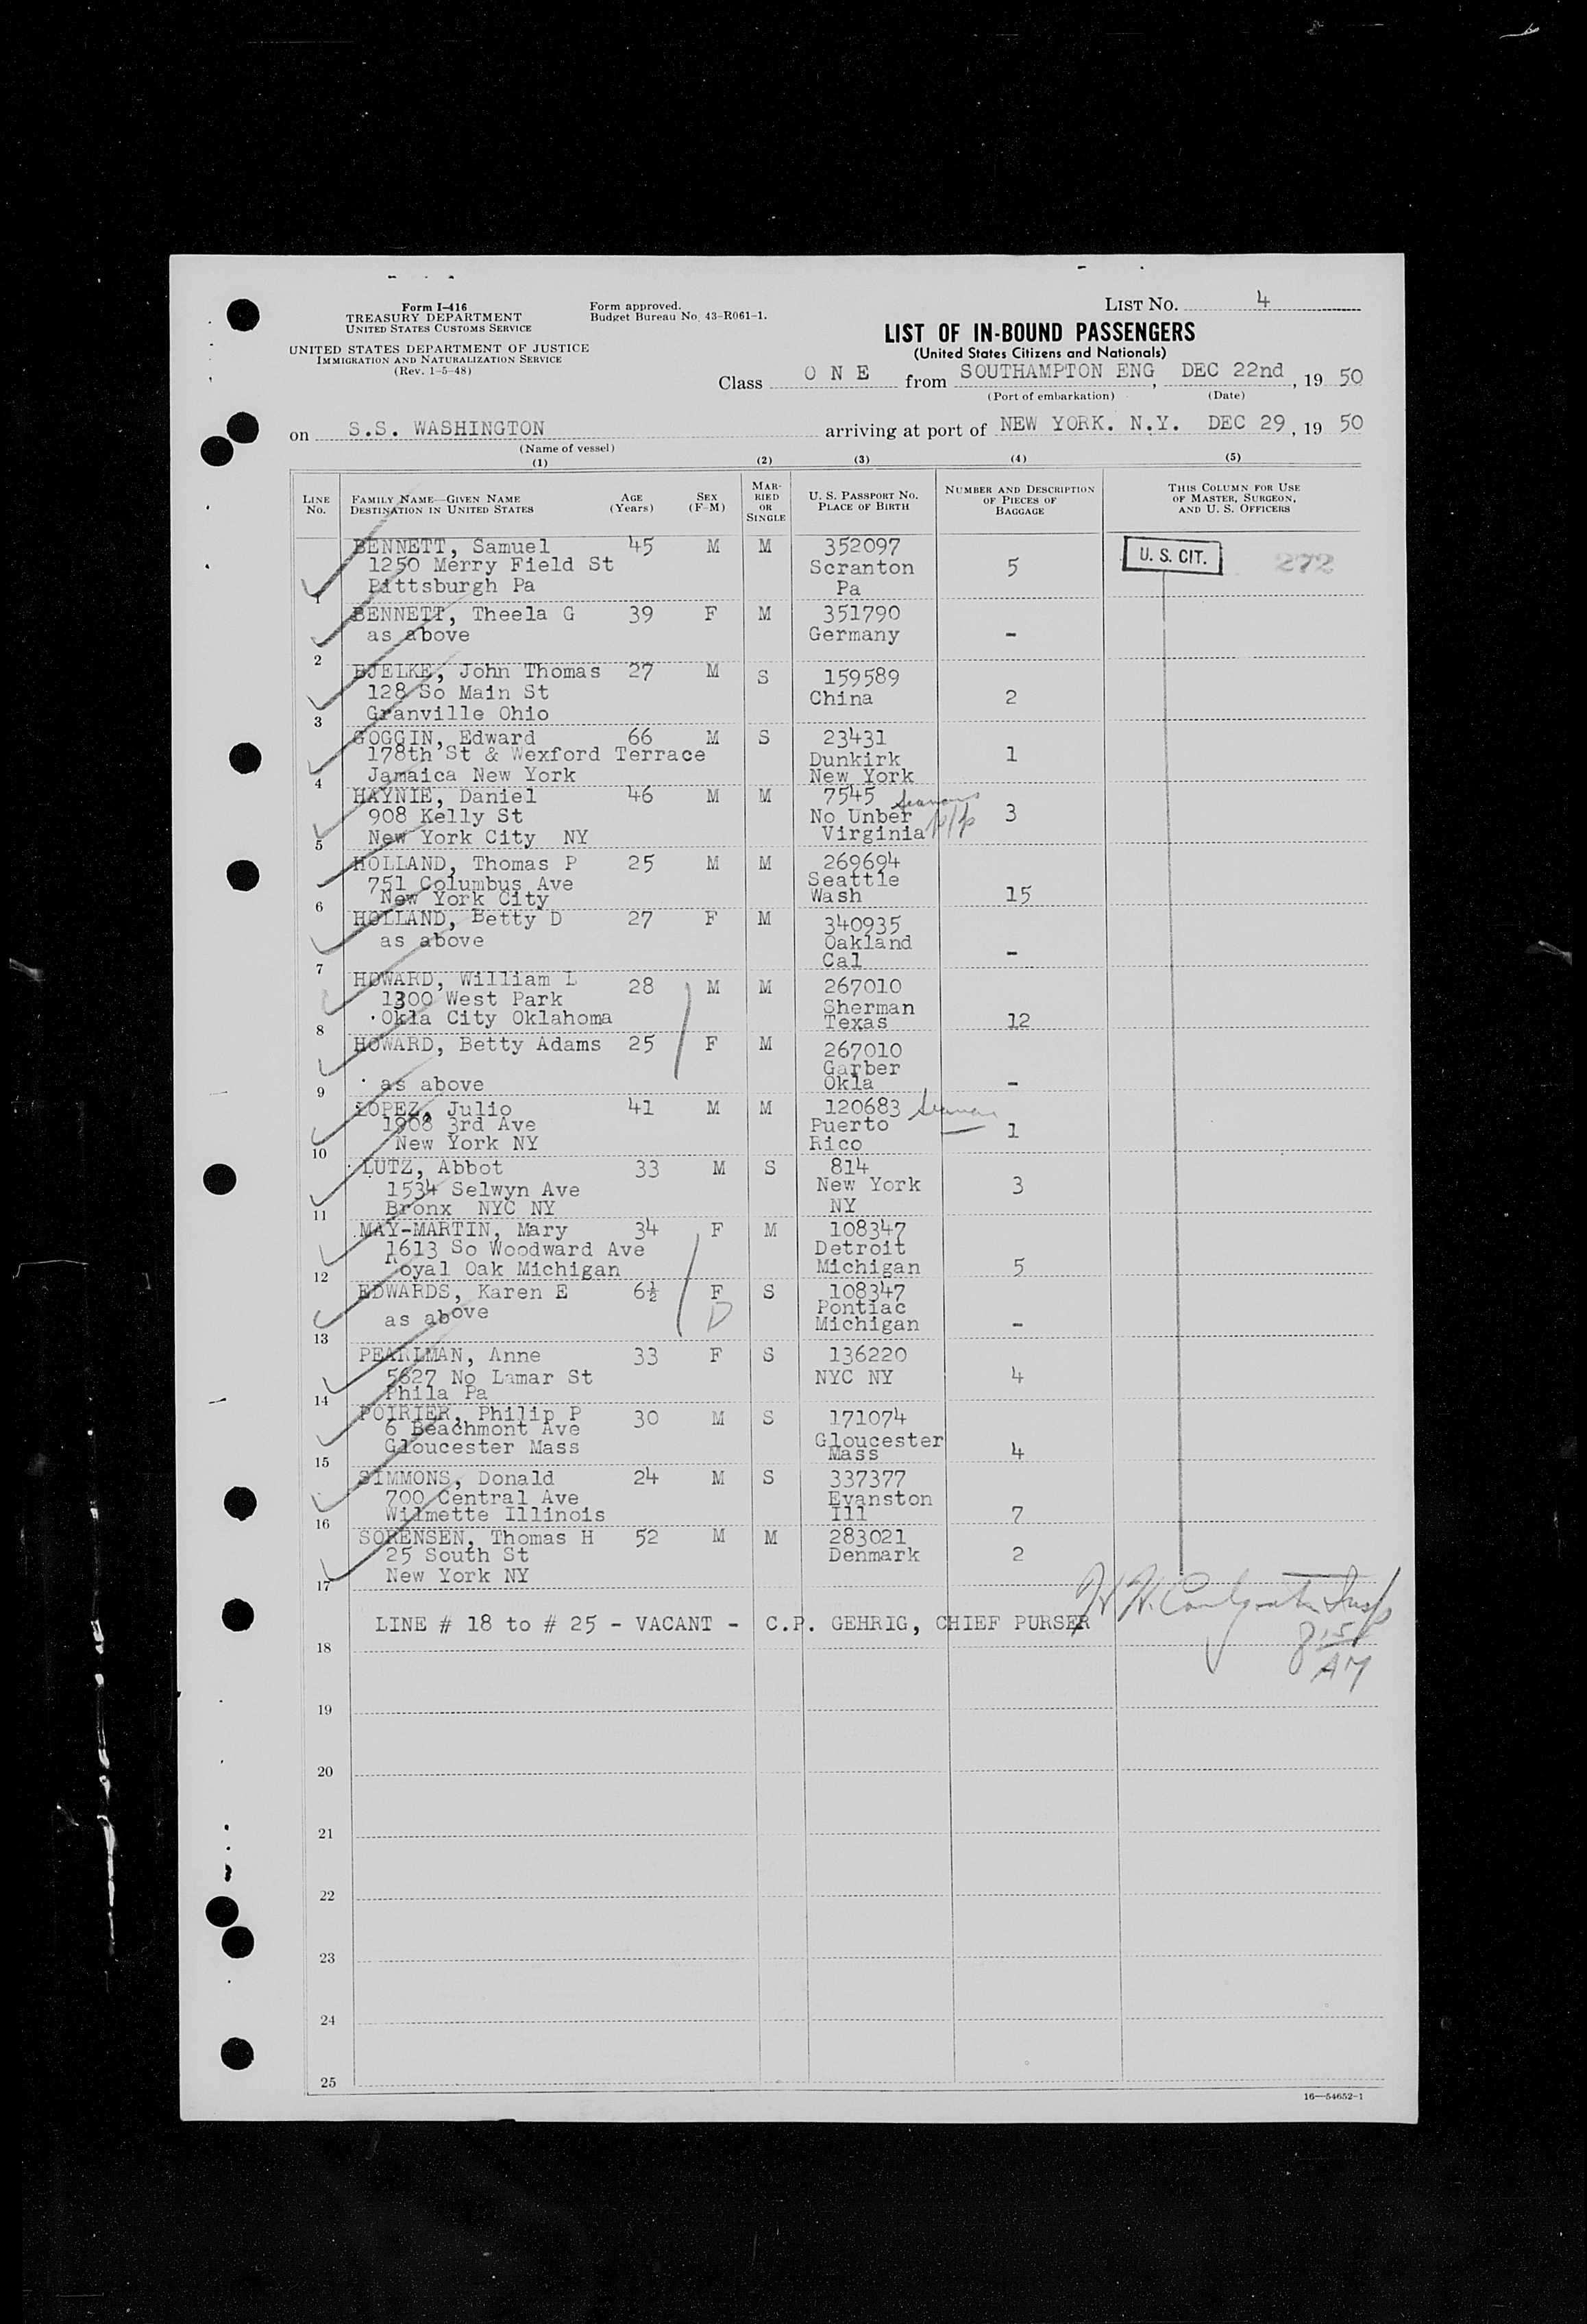 Form I-416
TREASURY DEPARTMENT
UNITED STATES CUSTOMS SERVICE
UNITED STATES DEPARTMENT OF JUSTICE
IMMIGRATION AND NATURALIZATION SERVICE
(Rev. 1-5-48)
Form approved.
Budget Bureau No. 43-R061-1.
LIST NO. 4
LIST OF IN-BOUND PASSENGERS
(United States Citizens and Nationals)
Class O N E from SOUTHAMPTON ENG, DEC 22nd, 19 50
(Port of embarkation) (Date)
on S.S. WASHINGTON arriving at port of NEW YORK. N.Y. DEC 29, 19 50
(Name of vessel)
(1) (2) (3) (4) (5)
LINE NO. FAMILY NAME—GIVEN NAME DESTINATION IN UNITED STATES AGE (Years) SEX (F-M) MARRIED OR SINGLE U. S. PASSPORT NO. PLACE OF BIRTH NUMBER AND DESCRIPTION OF PIECES OF BAGGAGE THIS COLUMN FOR USE OF MASTER, SURGEON, AND U. S. OFFICERS
BENNETT, Samuel 45 M M 352097 U. S. CIT. 272
1250 Merry Field St Scranton 5
Pittsburgh Pa Pa
1
BENNETT, Theela G 39 F M 351790
as above Germany -
2
BJELKE, John Thomas 27 M S 159589
128 So Main St China 2
3 Granville Ohio
GOGGIN, Edward 66 M S 23431
178th St & Wexford Terrace Dunkirk 1
4 Jamaica New York New York
HAYNIE, Daniel 46 M M 7545
908 Kelly St No Unber 3
5 New York City NY Virginia
HOLLAND, Thomas P 25 M M 269694
751 Columbus Ave Seattle
6 New York City Wash 15
HOLLAND, Betty D 27 F M 340935
as above Oakland
7 Cal -
HOWARD, William L 28 M M 267010
1300 West Park Sherman
8 Okla City Oklahoma Texas 12
HOWARD, Betty Adams 25 F M 267010
Garber
9 as above Okla -
LOPEZ, Julio 41 M M 120683 Seaman
1908 3rd Ave Puerto 1
10 New York NY Rico
LUTZ, Abbot 33 M S 814
1534 Selwyn Ave New York 3
11 Bronx NYC NY NY
MAY-MARTIN, Mary 34 F M 108347
1613 So Woodward Ave Detroit
12 Royal Oak Michigan Michigan 5
EDWARDS, Karen E 6½ F S 108347
as above D Pontiac
13 Michigan -
PEARLMAN, Anne 33 F S 136220
5627 No Lamar St NYC NY 4
14 Phila Pa
POIRIER, Philip P 30 M S 171074
6 Beachmont Ave Gloucester
15 Gloucester Mass Mass 4
SIMMONS, Donald 24 M S 337377
700 Central Ave Evanston
16 Wilmette Illinois Ill 7
SORENSEN, Thomas H 52 M M 283021
25 South St Denmark 2
17 New York NY
LINE # 18 to # 25 - VACANT - C.P. GEHRIG, CHIEF PURSER
815
AM
18
19
20
21
22
23
24
25
16—54652-1